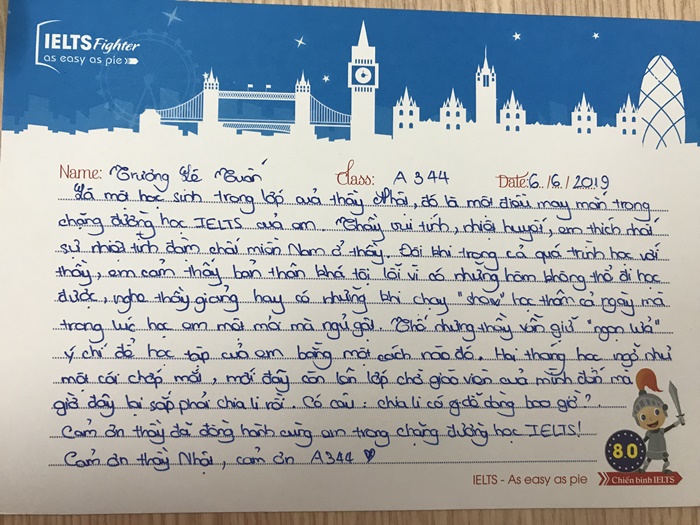 IELTS Fighter
as easy as pie
Name: Trương Lê Tuấn Class: A344 Date: 6/6/2019
Là một học sinh trong lớp của thầy Nhật, đó là một điều may mắn trong
chặng đường học IELTS của em. Thầy vui tính, nhiệt huyết, em thích nhất
sự nhiệt tình đậm chất miền Nam ở thầy. Đôi khi trong cả quá trình học với
thầy, em cảm thấy bản thân khá tội lỗi vì có những hôm không thể đi học
được, nghe thầy giảng hay có những khi chạy "show" học thêm cả ngày mà
trong lúc học em mệt mỏi mà ngủ gật. Thế nhưng thầy vẫn giữ "ngọn lửa"
ý chí để học tập của em bằng một cách nào đó. Hai tháng học ngỡ như
một cái chớp mắt, mới đây còn lên lớp chờ giáo viên của mình đến mà
giờ đây lại sắp phải chia li rồi. Có câu: chia li có gì dễ dàng bao giờ?
Cảm ơn thầy đã đồng hành cùng em trong chặng đường học IELTS!
Cảm ơn thầy Nhật, cảm ơn A344 ♥
8.0
IELTS - As easy as pie
Chiến binh IELTS